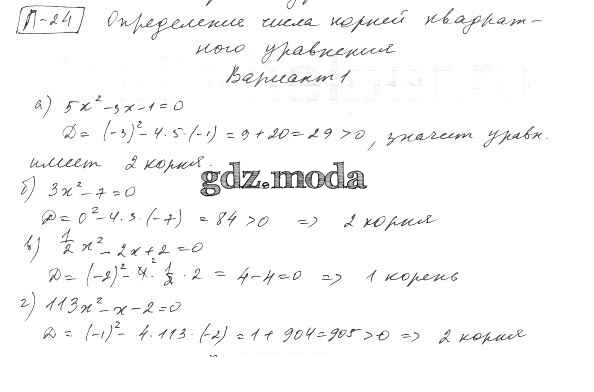 П-24 Определение числа корней квадрат-
ного уравнения
Вариант 1
а) 5x² - 3x - 1 = 0
D = (-3)² - 4·5·(-1) = 9 + 20 = 29 > 0, значит уравн.
имеет 2 корня.
gdz.moda
б) 3x² - 7 = 0
D = 0² - 4·3·(-7) = 84 > 0 => 2 корня
в) 1/2 x² - 2x + 2 = 0
D = (-2)² - 4·1/2·2 = 4 - 4 = 0 => 1 корень
г) 113x² - x - 2 = 0
D = (-1)² - 4·113·(-2) = 1 + 904 = 905 > 0 => 2 корня